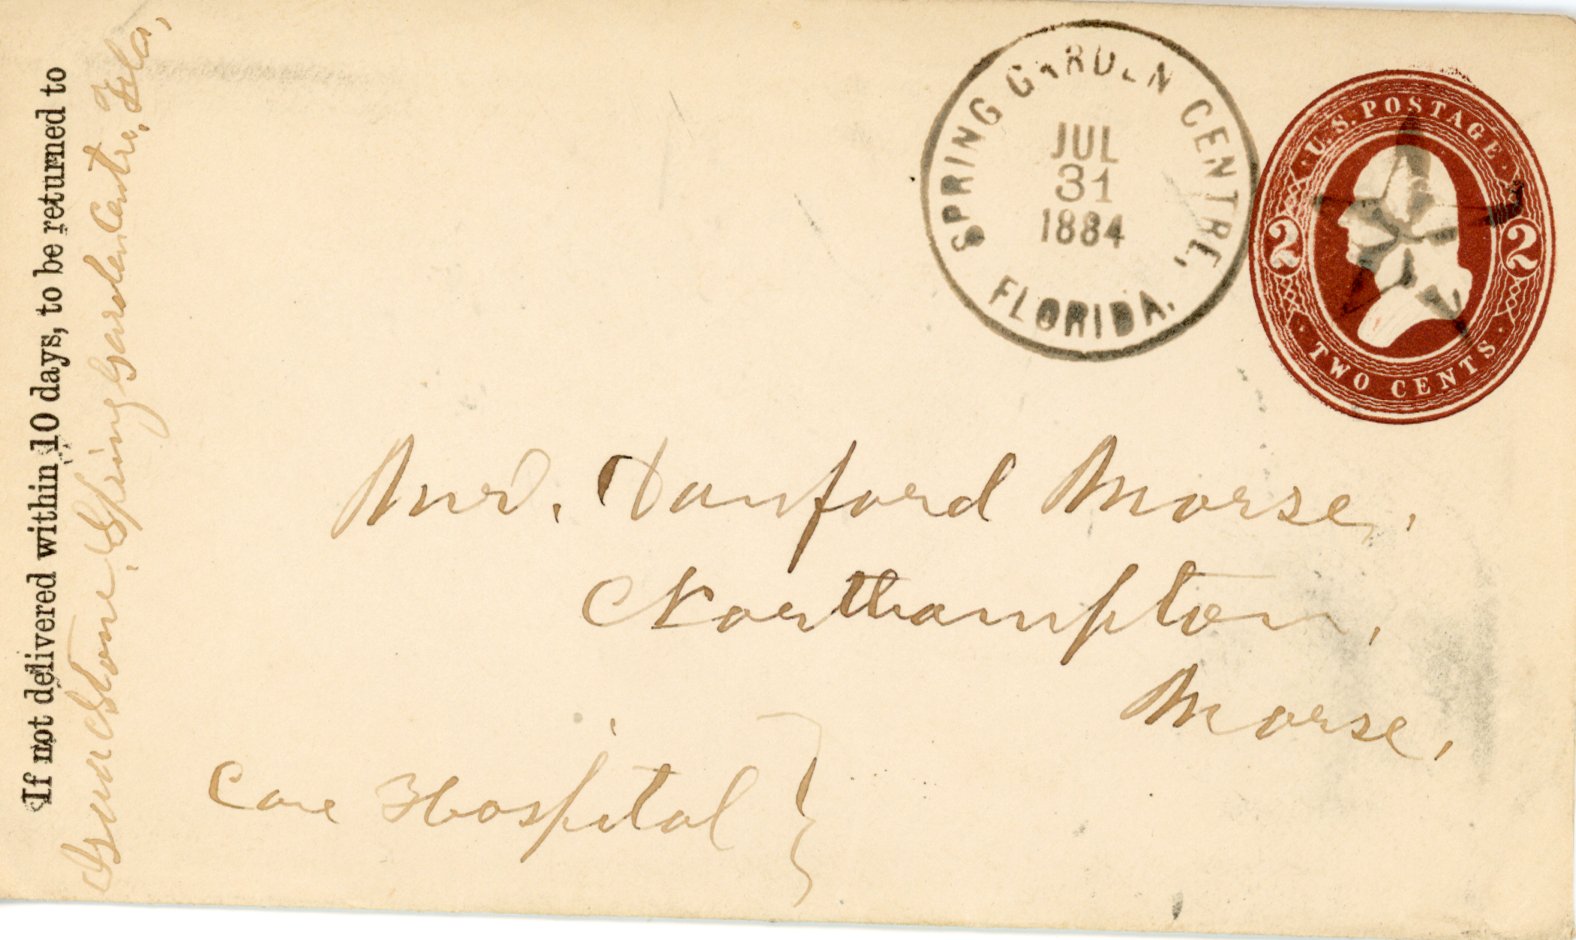 If not delivered within 10 days, to be returned to
Stone, Spring Garden Centre, Fla,
SPRING GARDEN CENTRE,
JUL
31
1884
FLORIDA.
U.S. POSTAGE
2 2
TWO CENTS
Mrs. Danford Morse,
Northampton,
Morse,
Care Hospital